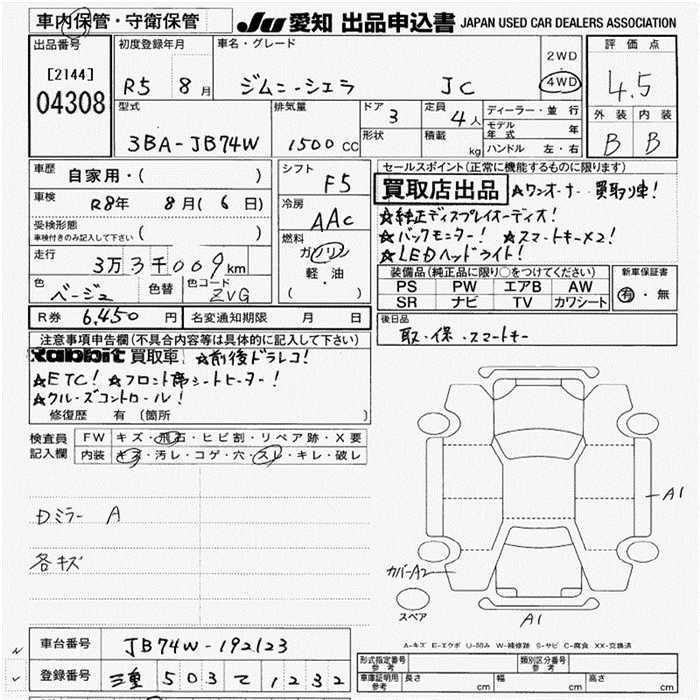 車内保管・守衛保管 JU 愛知 出品申込書 JAPAN USED CAR DEALERS ASSOCIATION
出品番号 初度登録年月 車名・グレード 2WD 評価点
[2144] R5 8月 ジムニーシエラ JC 4WD 4.5
04308 型式 排気量 ドア 3 定員 4人 ディーラー・並行 外装 内装
3BA-JB74W 1500cc 形状 積載 kg モデル年式 年 B B
ハンドル 左・右
車歴 自家用・( ) シフト F5 セールスポイント(正常に機能するものに限ります)
車検 R8年 8月(6日) 冷房 AAC 買取店出品 ☆ワンオーナー 買取り車!
受検形態 車検付きのみ記入して下さい ( ) ☆純正ディスプレイオーディオ!
走行 3万3千009km 燃料 ガソリン ☆バックモニター! ☆スマートキー×2!
軽・油 ☆LEDヘッドライト!
色 ベージュ 色替 色コード ZVG ( ) 装備品(純正品に限り○をつけてください) 新車保証書
PS PW エアB AW 有・無
SR ナビ TV カワシート
R券 6,450円 名変通知期限 月 日 後日品
取・保・スマートキー
注意事項申告欄(不具合内容等は具体的に記入して下さい)
Rabbit 買取車 ☆前後ドラレコ!
☆ETC! ☆フロント席シートヒーター!
☆クルーズコントロール!
修復歴 有 (箇所 )
検査員記入欄 FW キズ・飛石・ヒビ割・リペア跡・X要
内装 キズ・汚レ・コゲ・穴・スレ・キレ・破レ
A1
Dミラー A
各キズ
カバーA2
スペア
A1
A-キズ E-エクボ U-凹み W-補修跡 S-サビ C-腐食 XX-交換済
車台番号 JB74W-192123
登録番号 三重 503 て 1232
形式指定番号 参考 類別区分番号 参考
車庫証明用 参考 長さ cm 幅 cm 高さ cm